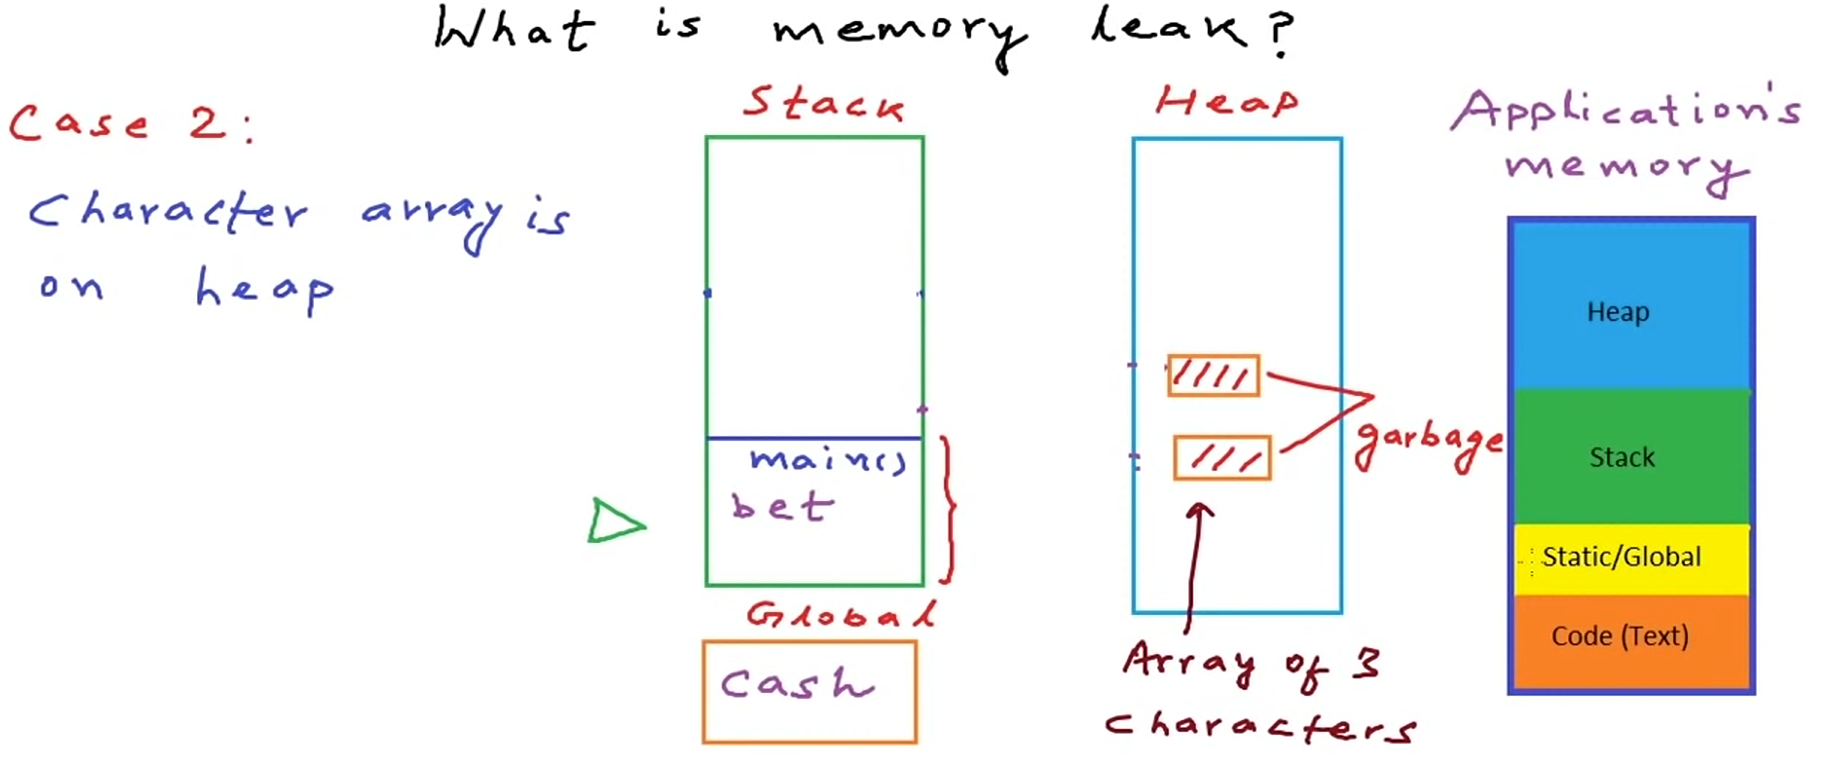 What is memory leak?
Case 2:
Character array is
on heap
Stack
main()
bet
Global
Cash
Heap
garbage
Array of 3
characters
Application's
memory
Heap
Stack
Static/Global
Code (Text)